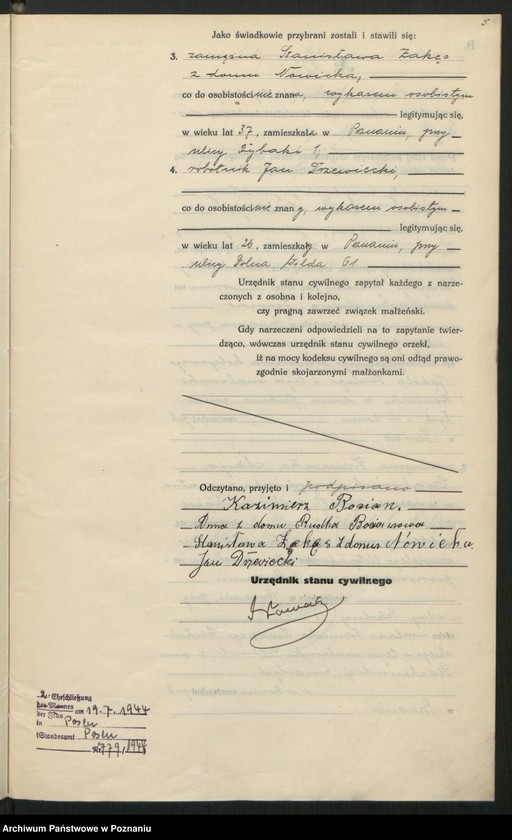 5
Jako świadkowie przybrani zostali i stawili się:
3. zamężna Stanisława Zakęs
z domu Nowicka,
co do osobistości nie znana, wykazem osobistym
legitymując się,
w wieku lat 37, zamieszkała w Poznaniu, przy
ulicy Rybaki 1,
4. robotnik Jan Drzewiecki,
co do osobistości nie znany, wykazem osobistym
legitymując się,
w wieku lat 26, zamieszkały w Poznaniu, przy
ulicy Dolna Wilda 61.
Urzędnik stanu cywilnego zapytał każdego z narze-
czonych z osobna i kolejno,
czy pragną zawrzeć związek małżeński.
Gdy narzeczeni odpowiedzieli na to zapytanie twier-
dząco, wówczas urzędnik stanu cywilnego orzekł,
iż na mocy kodeksu cywilnego są oni odtąd prawo-
zgodnie skojarzonymi małżonkami.
Odczytano, przyjęto i podpisano
Kazimierz Bosian.
Anna z domu Rudka
Stanisława Zakęs z domu Nowicka.
Jan Drzewiecki
Urzędnik stanu cywilnego
2. Eheschließung
des Mannes
der Frau am 19.7.1944
in Posen
(Standesamt Posen
Nr. 779/1944)
Archiwum Państwowe w Poznaniu